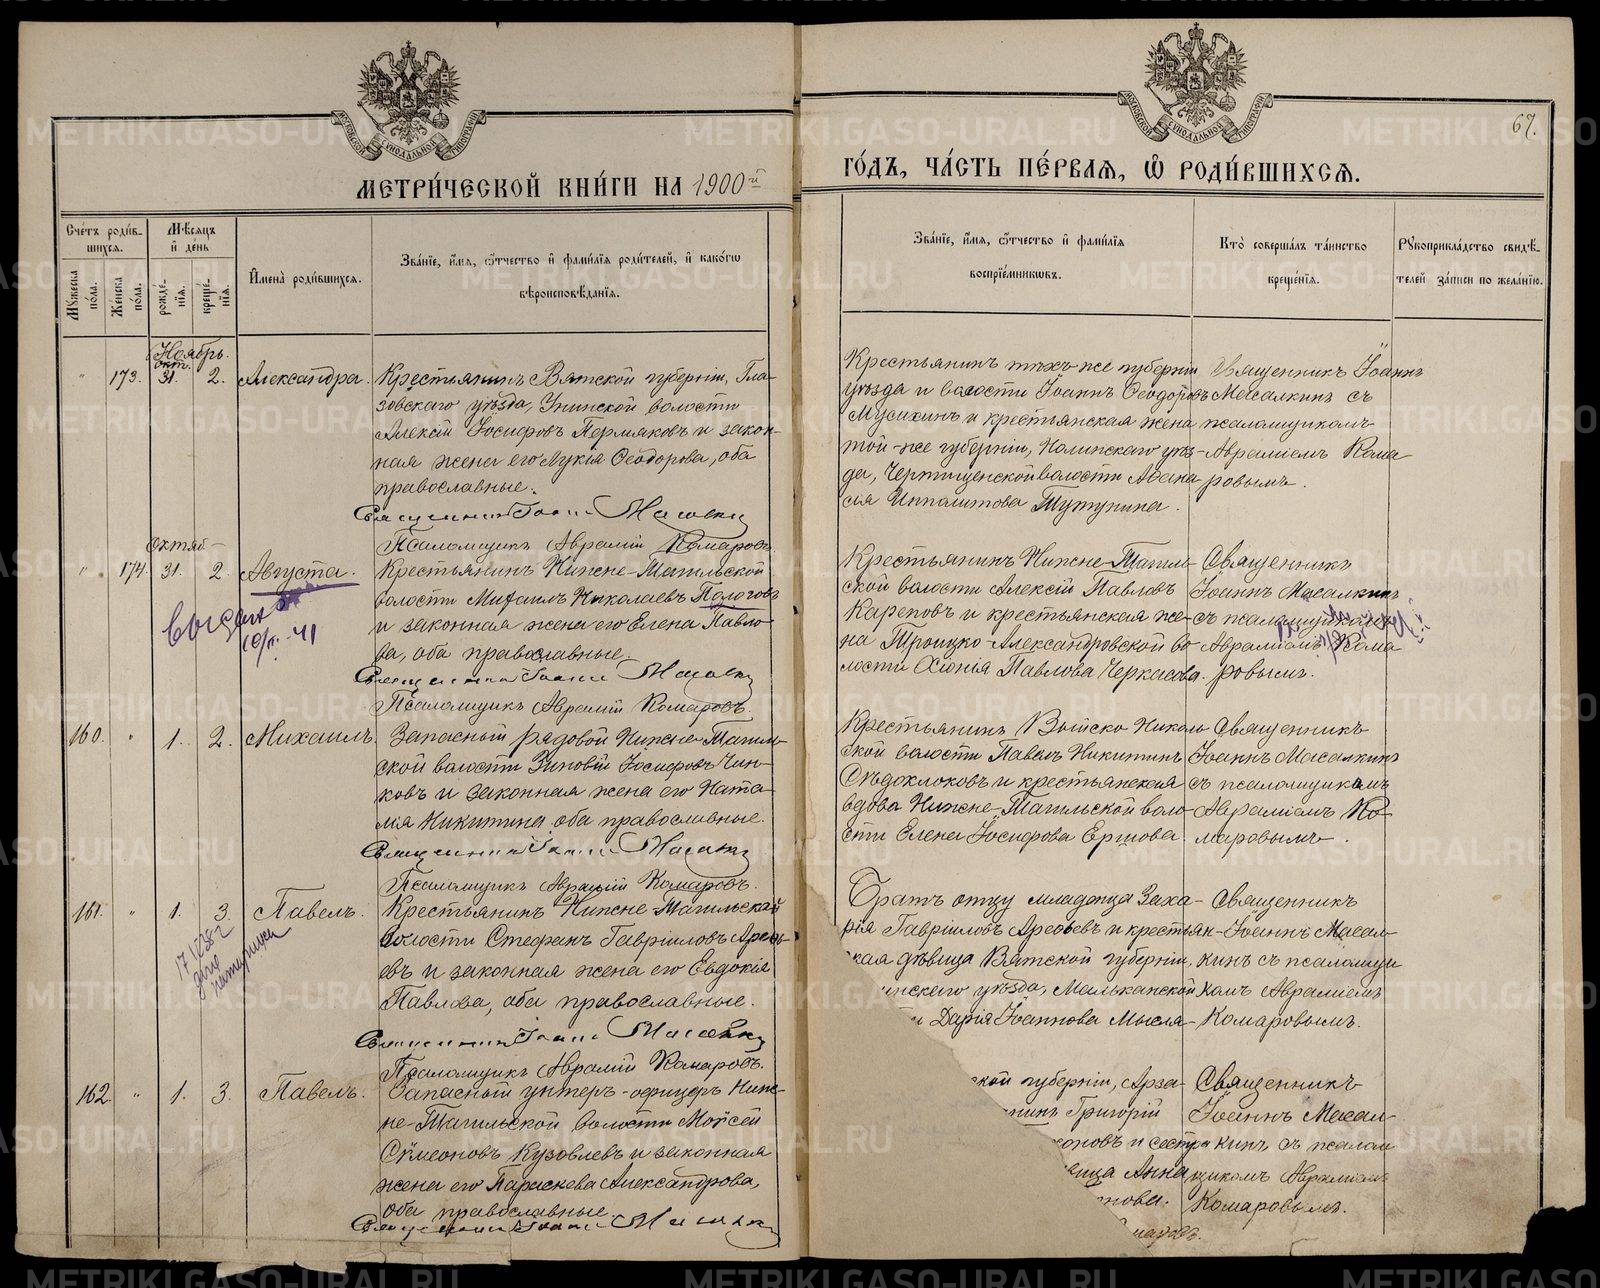 67.
МЕТРИ́ЧЕСКОЙ КНИ́ГИ НА 1900й
ГО́ДЪ, ЧА́СТЬ ПЕ́РВАѦ, Ѡ РОДИ́ВШИХСѦ.
Сче́тъ роди́в-
шихсѧ.
Мѣ́сѧцъ
и де́нь
Мꙋ́жеска
по́ла.
Же́нска
по́ла.
рожде́-
нїѧ.
креще́-
нїѧ.
Имена̀ роди́вшихсѧ.
Зва́нїе, и́мѧ, ѻ҆́тчество и фами́лїѧ роди́телей, и како́гѡ
вѣроисповѣ́данїѧ.
Зва́нїе, и́мѧ, ѻ҆́тчество и фами́лїѧ
воспрїе́мникѡвъ.
Кто̀ соверша́лъ та́инство
креще́нїѧ.
Рꙋкоприкла́дство свидѣ́-
телей за́писи по жела́нїю.
Ноябрь.
окт.
" 173. 31. 2. Александра.
Крестьянинъ Вятской губерніи, Гла-
зовскаго уѣзда, Унинской волости
Алексій Іосифовъ Пермяковъ и закон-
ная жена его Лукія Ѳеодорова, оба
православные.
Священникъ Іоаннъ Масалкинъ
Псаломщикъ Авраамій Комаровъ.
Крестьянинъ тѣхъ-же губерніи
уѣзда и волости Іоаннъ Ѳеодоровъ
Мусихинъ и крестьянская жена
той-же губерніи, Нолинскаго уѣз-
да, волости Аѳана
сія Ипполитова Тутунина.
Священникъ Іоаннъ
Масалкинъ съ
псаломщикомъ
Авраміемъ Кома
ровымъ.
октяб
" 174. 31. 2. Августа.
10/II-41
Крестьянинъ Нижне-Тагильской
волости Михаилъ Николаевъ Пологовъ
и законная жена его Елена Павло-
ва, оба православные.
Священникъ Іоаннъ Масалкинъ
Псаломщикъ Аврамій Комаровъ.
Крестьянинъ Нижне-Тагиль
ской волости Алексій Павловъ
Карповъ и крестьянская же-
на Троицко-Александровской во
лости Хіонія Павлова Черкасова.
Священникъ
Іоаннъ Масалкинъ
съ псаломщикомъ
Авраміемъ Кома
ровымъ.
160. " 1. 2. Михаилъ.
Запасный рядовой Нижне-Тагиль-
ской волости Зиновій Іосифовъ Чин-
ковъ и законная жена его Ната-
лія Никитина оба православные.
Священникъ Іоаннъ Масалкинъ
Псаломщикъ Аврамій Комаровъ.
Крестьянинъ Выйско-Николь
ской волости Павелъ Никитинъ
Сѣдохлоковъ и крестьянская
вдова Нижне-Тагильской воло-
сти Елена Іосифова Ершова.
Священникъ
Іоаннъ Масалкинъ
съ псаломщикомъ
Авраміемъ Ко
маровымъ.
161. " 1. 3. Павелъ.
17 V 38 г
Крестьянинъ Нижне-Тагильской
волости Стефанъ Гавріиловъ Арефь-
евъ и законная жена его Евдокія
Павлова, оба православные.
Священникъ Іоаннъ Масалкинъ
Псаломщикъ Аврамій Комаровъ.
Братъ отцу младенца Заха-
рія Гавріиловъ Арефьевъ и крестьян-
ская дѣвица Вятской губерніи,
инскаго уѣзда, Мальканской
ти Дарія Іоаннова Мысля-
Священникъ
Іоаннъ Масал-
кинъ съ псаломщи
комъ Авраміемъ
Комаровымъ.
162. " 1. 3. Павелъ.
Запасный унтеръ-офицеръ Ниж-
не-Тагильской волости Моѵсей
Сѵмеоновъ Кузовлевъ и законная
жена его Параскева Александрова,
оба православные.
Священникъ Іоаннъ Масалкинъ
ской губерніи, Арза-
нинъ Григорій
оновъ и сестра
вица Анна
нова.
маровъ.
Священникъ
Іоаннъ Масал-
кинъ съ псалом
щикомъ Авраміемъ
Комаровымъ.